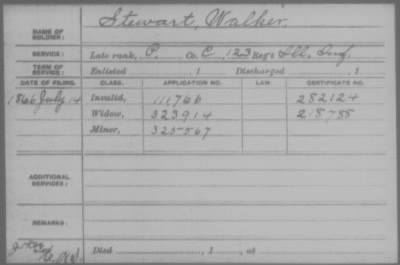 NAME OF SOLDIER: Stewart, Walker.
SERVICE: Late rank, P. Co. C, 123 Reg't Ill. Inf.
TERM OF SERVICE: Enlisted , 1 Discharged , 1
DATE OF FILING. CLASS. APPLICATION NO. LAW. CERTIFICATE NO.
1866 July 14 Invalid, 111766 282124
Widow, 323914 218788
Minor, 325567
ADDITIONAL SERVICES:
REMARKS:
Died , 1 , at